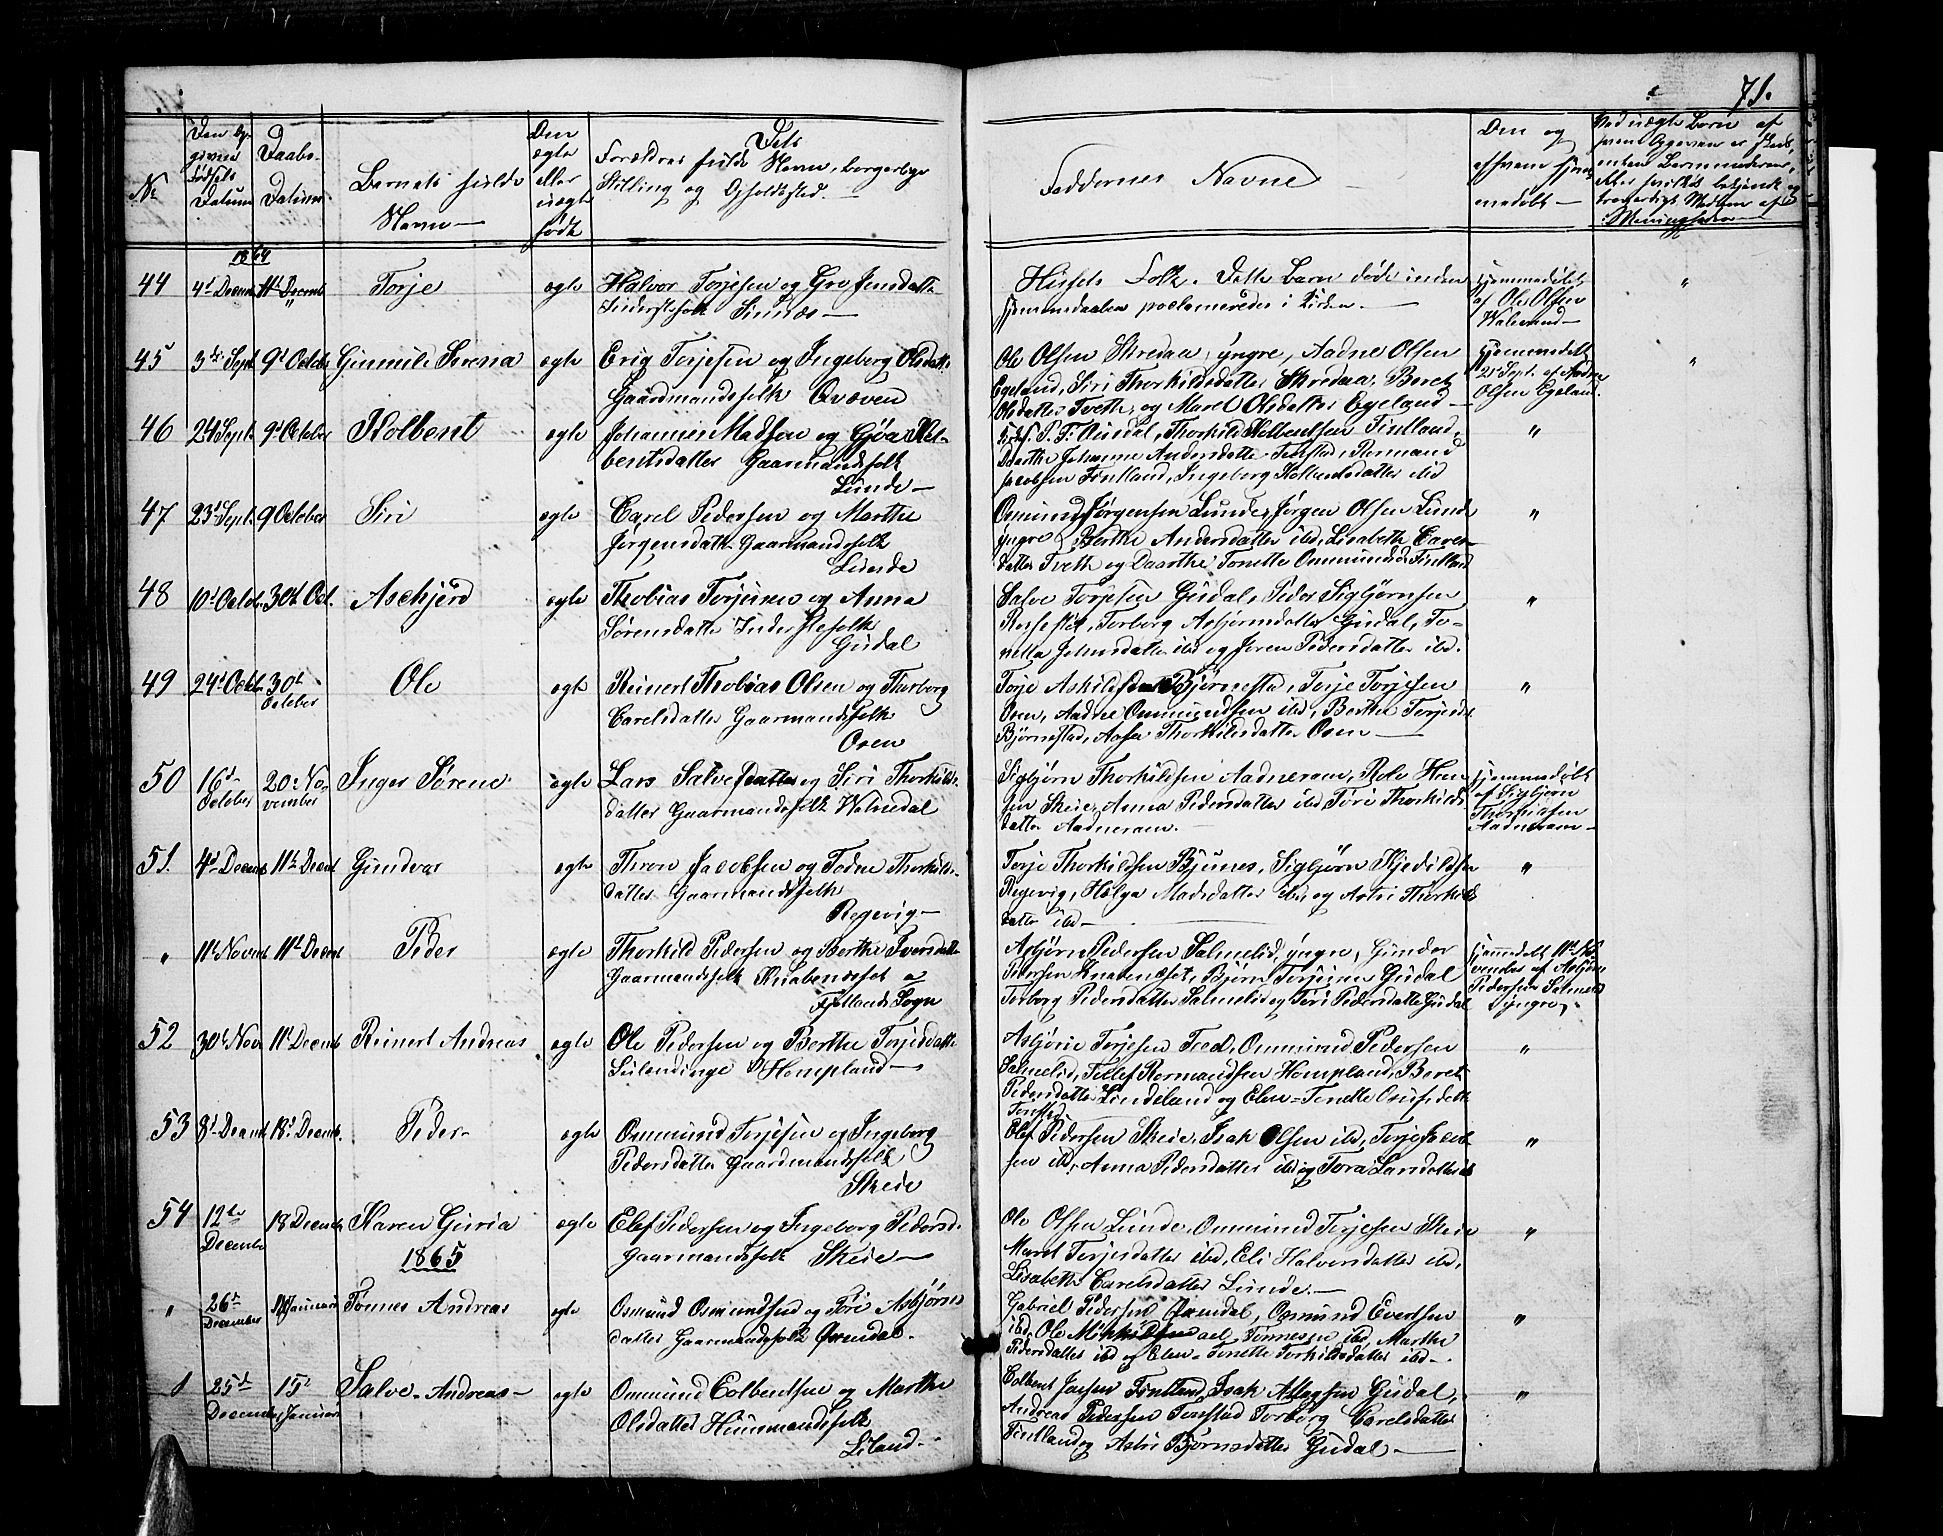 71.
№
Den op-
given
Fødsels
Datum
Daabs-
Datum
Barnets fulde
Navn
Den
ægte
eller
uægte
født
Dets
Forældres fulde Navn, borgerlige
Stilling og Opholdssted.
Faddernes Navne
Den og
af hvem hjem-
medøbt
1864
44 4d Decemb 11t Decemb Torje ægte Halvor Torjesen og Gro Jensdatter
Inderstefolk Sinnæs
Husets Folk. Dette Barn døde inden
hjemmedaaben proclameredes i Kirken.
hjemmedøbt
af Ole Olsen
"
45 3die Sept. 9d October Gunnile Serena ægte Erig Torjesen og Ingeborg Olsdatt.
Gaardmandsfolk Qvæven
Ole Olsen Skredaa, yngre, Aadne Olsen
Egeland, Siri Thorkildsdatter Skredaa, Beret
Olsdatter Tveth, og Marel Olsdatter Egeland
hjemmedøbt
25 Sept. af Aadne
Olsen Egeland.
"
46 24 Sept. 9d October Kolbent ægte Johannes Madsen og Gjøa Kol-
bentsdatter Gaarmandsfolk
Lunde
P. T. Ousdal, Thorkild Kolbentsen Fintland,
Johanne Andersdatter Tonstad, Rormand
Jacobsen Fintland, Ingeborg Kolbentsdatter ibid
"
47 23d Sept. 9 October Siri ægte Carel Pedersen og Marthe
Jørgensdatt. Gaarmandsfolk
Lunde
Osmund Jørgensen Lunde, Jørgen Olsen Lunde
yngre, Berthe Andersdatter ibd, Lisabeth Carels-
datter Tveth og Dorothe Tonette Ommundsd. Fintland
"
48 10d Octob. 30t Oct. Aschjerd ægte Thobias Torjusen og Anna
Sørensdatter Inderstefolk
Gusdal
Salve Torjesen Gusdal, Peder Sigbjørnsen
Torborg Asbjørnsdatter Gusdal, To-
netta Johnsdatter ibd og Joren Pedersdatter ibd.
"
49 24d Octob. 30t
October Ole ægte Reinert Thobias Olsen og Thorborg
Carelsdatter Gaarmandsfolk
Osen
Torje Askildsen Bjørnestad, Terje Torjesen
Osen, Aadne Ommundsen ibd, Berthe Torjesd.
Bjørnestad, Aase Thorkildsdatter Osen
"
50 16d
October 20. No-
vember Inger Sørene ægte Lars Salvesen og Siri Thorkilds-
datter Gaarmandsfolk
Sigbjørn Thorkildsen Aadneram, Rolv Han-
sen Skeie, Anna Pedersdatter ibd Tori Thorkilds
datter Aadneram.
hjemmedøbt
af Sigbjørn
Thorkildsen
Aadneram
51. 4d Decemb 11te Decemb Gundvor ægte Thron Jacobsen og Todne Thorkilds-
datter Gaarmandsfolk
Regevig
Torje Thorkildsen Bjunes, Sigbjørn Kjedildsen
Regevig, Helga Madsdatter ibd og Astri Thorkilds
datter ibd
"
" 11te Novemb 11t Decemb Peder ægte Thorkild Pedersen og Berthe Iversdatter
Gaarmandsfolk Knabenåset
Fjotlands Sogn
Asbjørn Pedersen Salmelid, yngre, Gunder
Pedersen Knabenåset, Bjørn Torjusen Gusdal
Torborg Pedersdatter Salmelid og Tori Pedersdatter Gusdal
hjemmedøbt 11te No-
vember af Asbjørn
Pedersen Salmelid
yngre,
52 30t Nov. 11t Decemb Reinert Andreas ægte Ole Pedersen og Berthe Torjesdatter
Leilendinge Hompland
Asbjørn Torjesen Josd, Ommund Pedersen
Salmelid, Tollef Rormandsen Hompland, Beret
Pedersdatter Lindeland og Elen Tonette Osufsdatt
Tonstad
"
53 8d Decemb 18d Decemb. Peder ægte Ommund Torjesen og Ingeborg
Pedersdatter Gaardmandsfolk
Skeie
Elef Pedersen Skeie, Isak Olsen ibd, Torje Jacob-
sen ibd, Anna Pedersdatter ibd og Tora Larsdatter ibd
"
54 12te
December 18 Decemb. Karen Guria ægte Elef Pedersen og Ingeborg Pedersd.
Gaarmandsfolk Skeie
Ole Olsen Lunde, Ommund Torjesen Skeie
Maret Torjesdatter ibd, Eli Halvorsdatter ibd,
Lisabeth Carelsdatter Lunde.
"
1865
" 26d
December Januari Tønnes Andreas ægte Osmund Osmundsen og Tori Asbjørns
datter Gaarmandsfolk Ousdal.
Gabriel Pedersen Ousdal, Osmund Evertsen
ibd, Ole Tønnessen ibd, Marthe
Pedersdatter ibd og Elen Tonette Torkildsdatter ibd.
"
1 25d
Decemb. 15d
Januari Salve Andreas ægte Ommund Colbentsen og Marthe
Olsdatter Huusmandsfolk
Liland.
Colbent Fintland, Isak Aslagsen Gusdal,
Andreas Pedersen Tonstad Torborg Carelsdatter
Fintland og Astri Bjørnsdatter Gusdal.
"